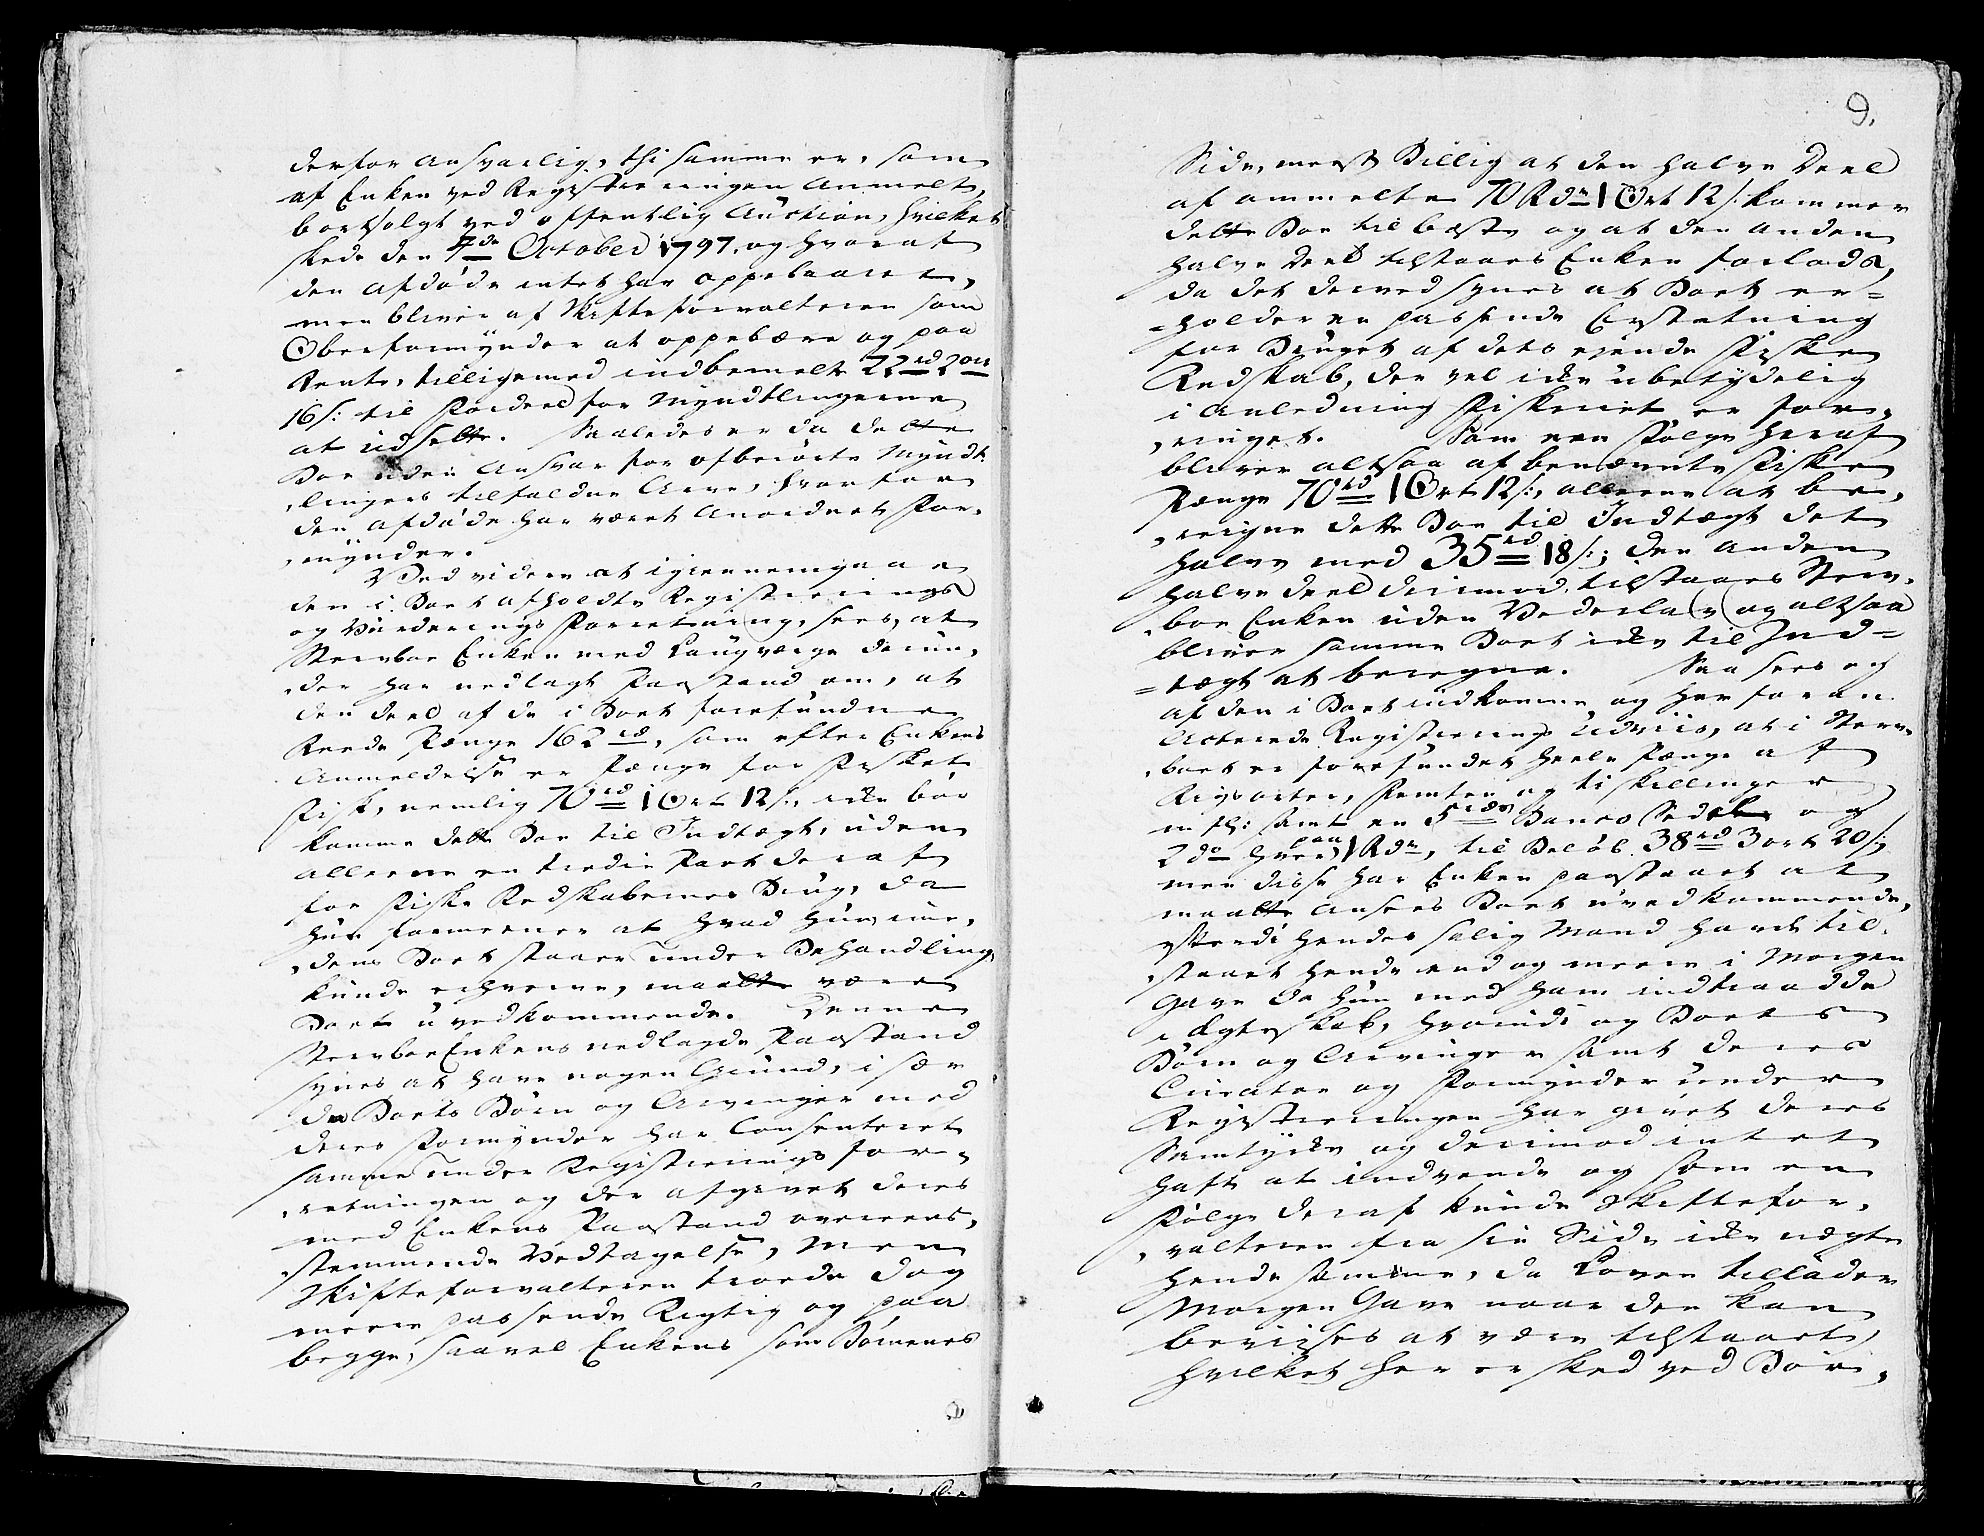 derfor Ansvarlig, thi samme er, som
af Enken ved Registreeringen Anmelt,
bortsolgt ved offentlig Auction, hvilket
skede den 7de October 1797. og hvoraf
den Afdøde intet har oppebaaret,
men bliver af Skifteforvalteren som
Oberformynder at oppebære og paa
Rente, tilligemed indbemelte 22rd 2ort
16s: til Fordeel for Myndtlingerne
at udsette. Saaledes er da dette
Boe uden Ansvar for ofberørte Myndt„
„lingers tilfaldne Arve, hvorfor
den Afdøde har været Anordnet For„
„mynder.
Ved videre at igiennemgaae
den i Boet afholdte Registreerings
og Vurderings Forretning, sees, at
Stervboe Enken med Laugværge derun„
„der har nedlagt Paastand om, at
den deel af de i Boet forefundne
Reede Penge 162rd, som efter Enkens
Anmeldelse er Penge for Fersket
Fisk, nemlig 70rd 1 Ort 12s:, ikke bør
komme dette Boe til Indtægt, uden
alleene en tredie Part deraf
for Fiske Redskabernes Brug, da
hun formeener at hvad hun, imi„
„dens Boet staaer under Behandling,
kunde erhverve, maatte være
Boet uvedkommende. Denne
Stervboe Enkens nedlagde Paastand
synes at have nogen Grund, i sær
da Boets Børn og Arvinger med
deres Formynder har Consenteret
samme under Registreerings for„
„retningen og der afgivet deres
med Enkens Paastand overeens„
„stemmende Vedtagelse, Men
Skifteforvalteren troede dog
meere passende Rigtig og paa
begge, saavel Enkens som Børnenes
9.
Side, meest Billig at den halve Deel
af ommelte 70 Rdr 1 Ort 12s: kommer
dette Boe til beste og at den anden
halve Deel tilstaaes Enken forlods,
da det derved synes at Boet er=
=holder en passende Erstatning
for Bruget af dets eiende Fiske
Redskab, der vel ikke ubetydelig
i Anledning Fiskeriet er for„
„ringet. Som een Følge heraf
bliver altsaa af benævnte Fiske
Penge 70rd 1 Ort 12s:, alleene at be„
„reigne dette Boe til Indtægt det
halve med 35rd 18s:; den anden
halve deel derimod tilstaaes Sterv„
„boe Enken uden Vederlag og altsaa
bliver samme Boet ikke til Ind=
=tægt at beregne. Saa sees og
af den i Boet indkomne og her foran
Acterede Registreerings Udviis, at i Sterv„
„boet er forefundet heele Penge af
Rigsorter, Femten og ti skillinger
m fl: samt en 5rds Banco Seddel og
2do hver paa 1 Rdr, til Beløb 38rd 3 ort 20s:,
men disse har Enken paastaaet at
maatte Ansees Boet uvedkommende,
efterdi hendes salig Mand havde til„
„staaet hende end og meere i Morgen
Gave da hun med ham indtraadde
i Ægteskab, hvorudi og Boets
Børn og Arvinger samt deres
Curator og Formynder under
Registreeringen har givet deres
Samtykke og derimod intet
haft at indvende og som en
Følge deraf kunde Skiftefor„
„valteren fra sin Side ikke negte
hende samme, da Loven tillader
Morgen Gave naar den kan
bevises at være tilstaaet,
hvilket her er sked ved Bør„